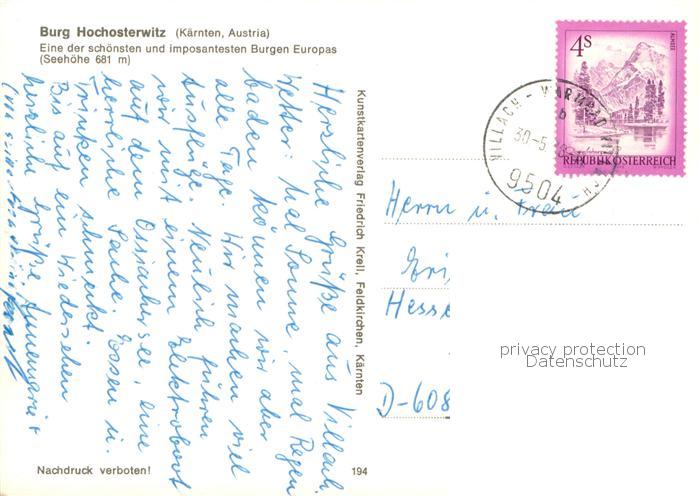 Burg Hochosterwitz (Kärnten, Austria)
Eine der schönsten und imposantesten Burgen Europas
(Seehöhe 681 m)
Herzliche Grüße aus Villach.
Wetter: Mal Sonne, mal Regen
baden können wir aber
alle Tage. Wir machen viel
Ausflüge. Neulich fuhren
wir mit einem Elektroboot
auf dem Ossiachersee, eine
herrliche Sache. Essen u.
Trinken schmeckt.
Bis auf ein Wiedersehen
herzliche Grüße Annemarie +
Kunstkartenverlag Friedrich Kreil, Feldkirchen, Kärnten
Nachdruck verboten!
194
4S
ALMSEE
REPUBLIK ÖSTERREICH
VILLACH - WARMBAD VILLACH
b
30-5.
9504
Herrn u. Frau
Eri
Hesse
D-608
privacy protection
Datenschutz